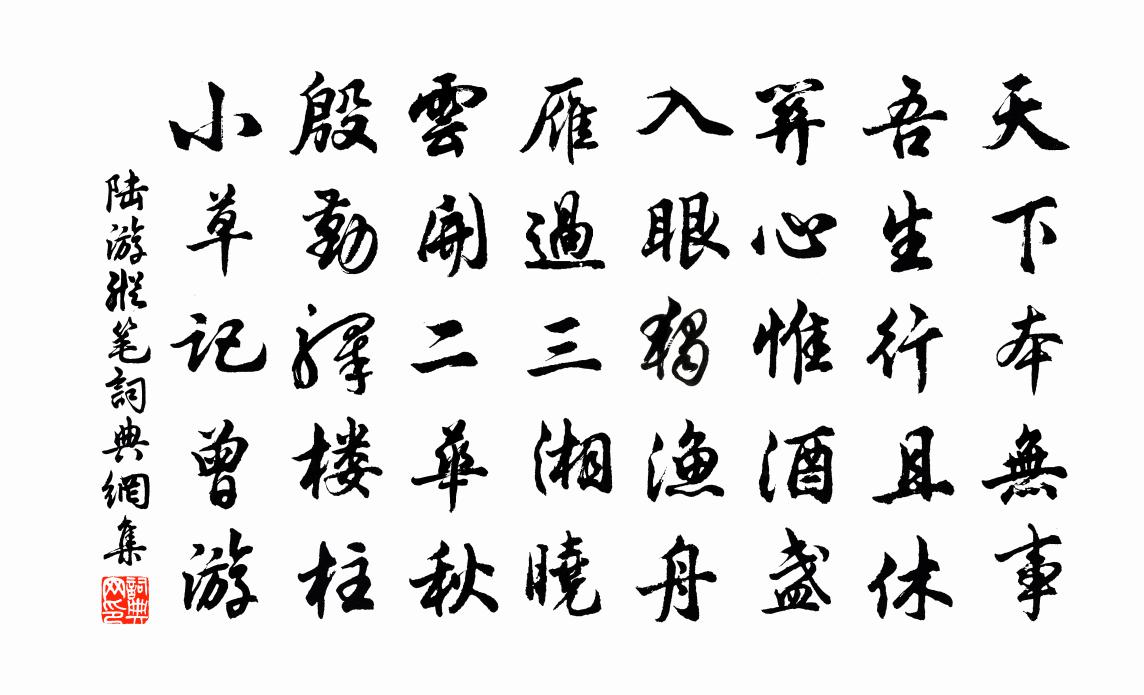 天下本無事
吾生行且休
關心惟酒盏
入眼獨漁舟
雁過三湘曉
雲開二華秋
殷勤驛楼柱
小草記曾游
陆游縱笔詞典網集
詞典网印